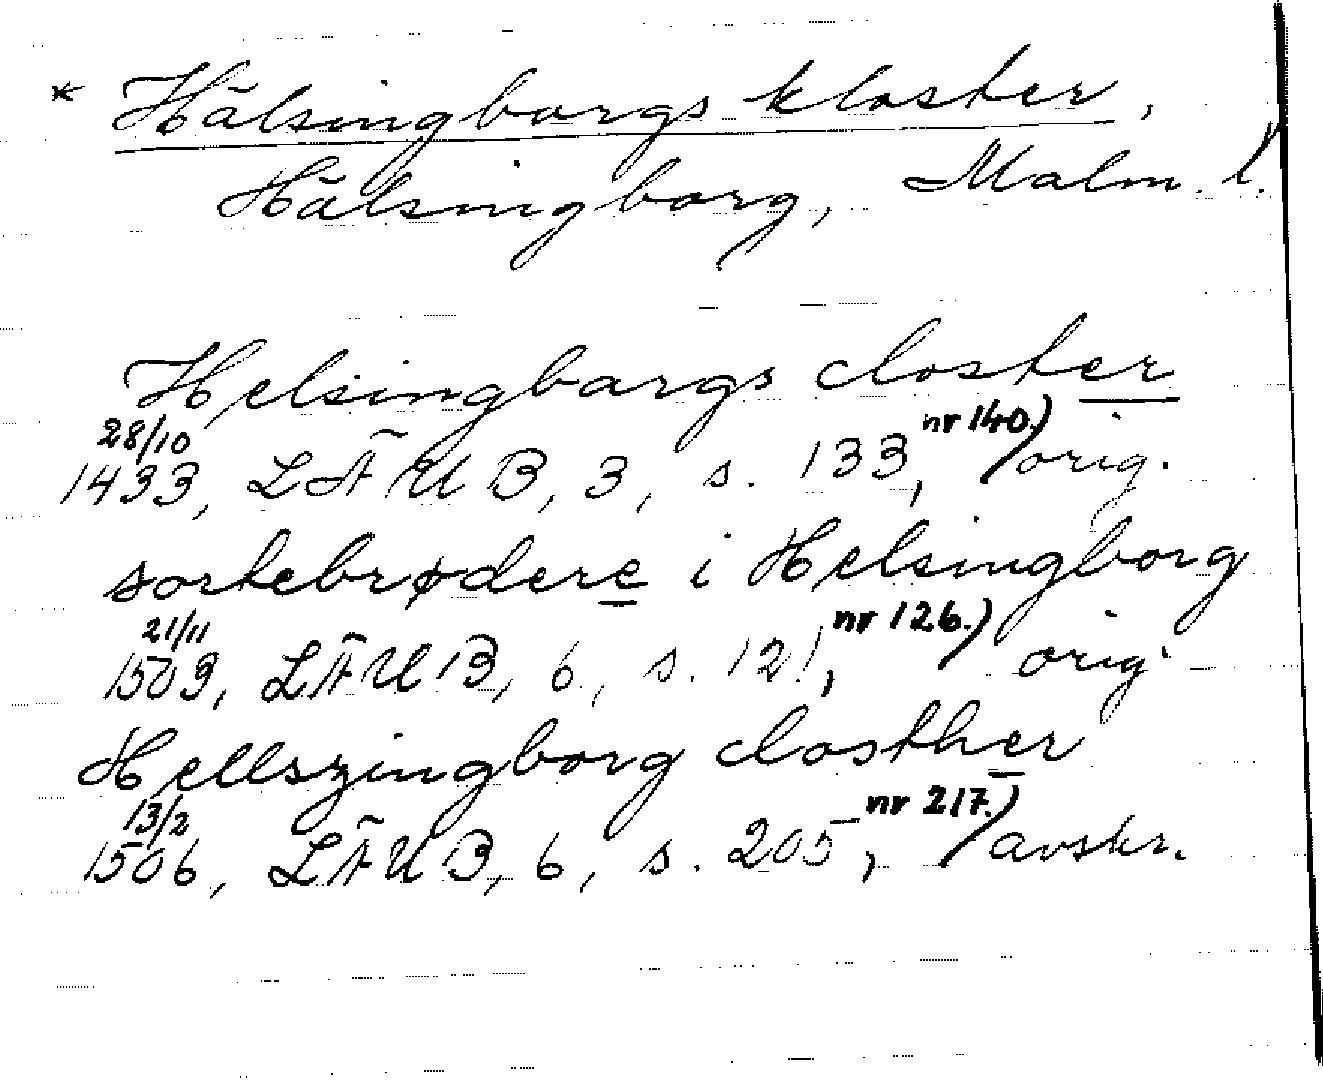 * Hälsingborgs kloster,
Hälsingborg, Malm. l.
Helsingbargs closter
28/10 nr 140.)
1433, LÄUB, 3, s. 133, orig.
sortebrødere i Helsingborg
21/11 nr 126.)
1503, LÄUB, 6, s. 121, orig.
Hellszingborg closther
13/2 nr 217.)
1506, LÄUB, 6, s. 205, avskr.